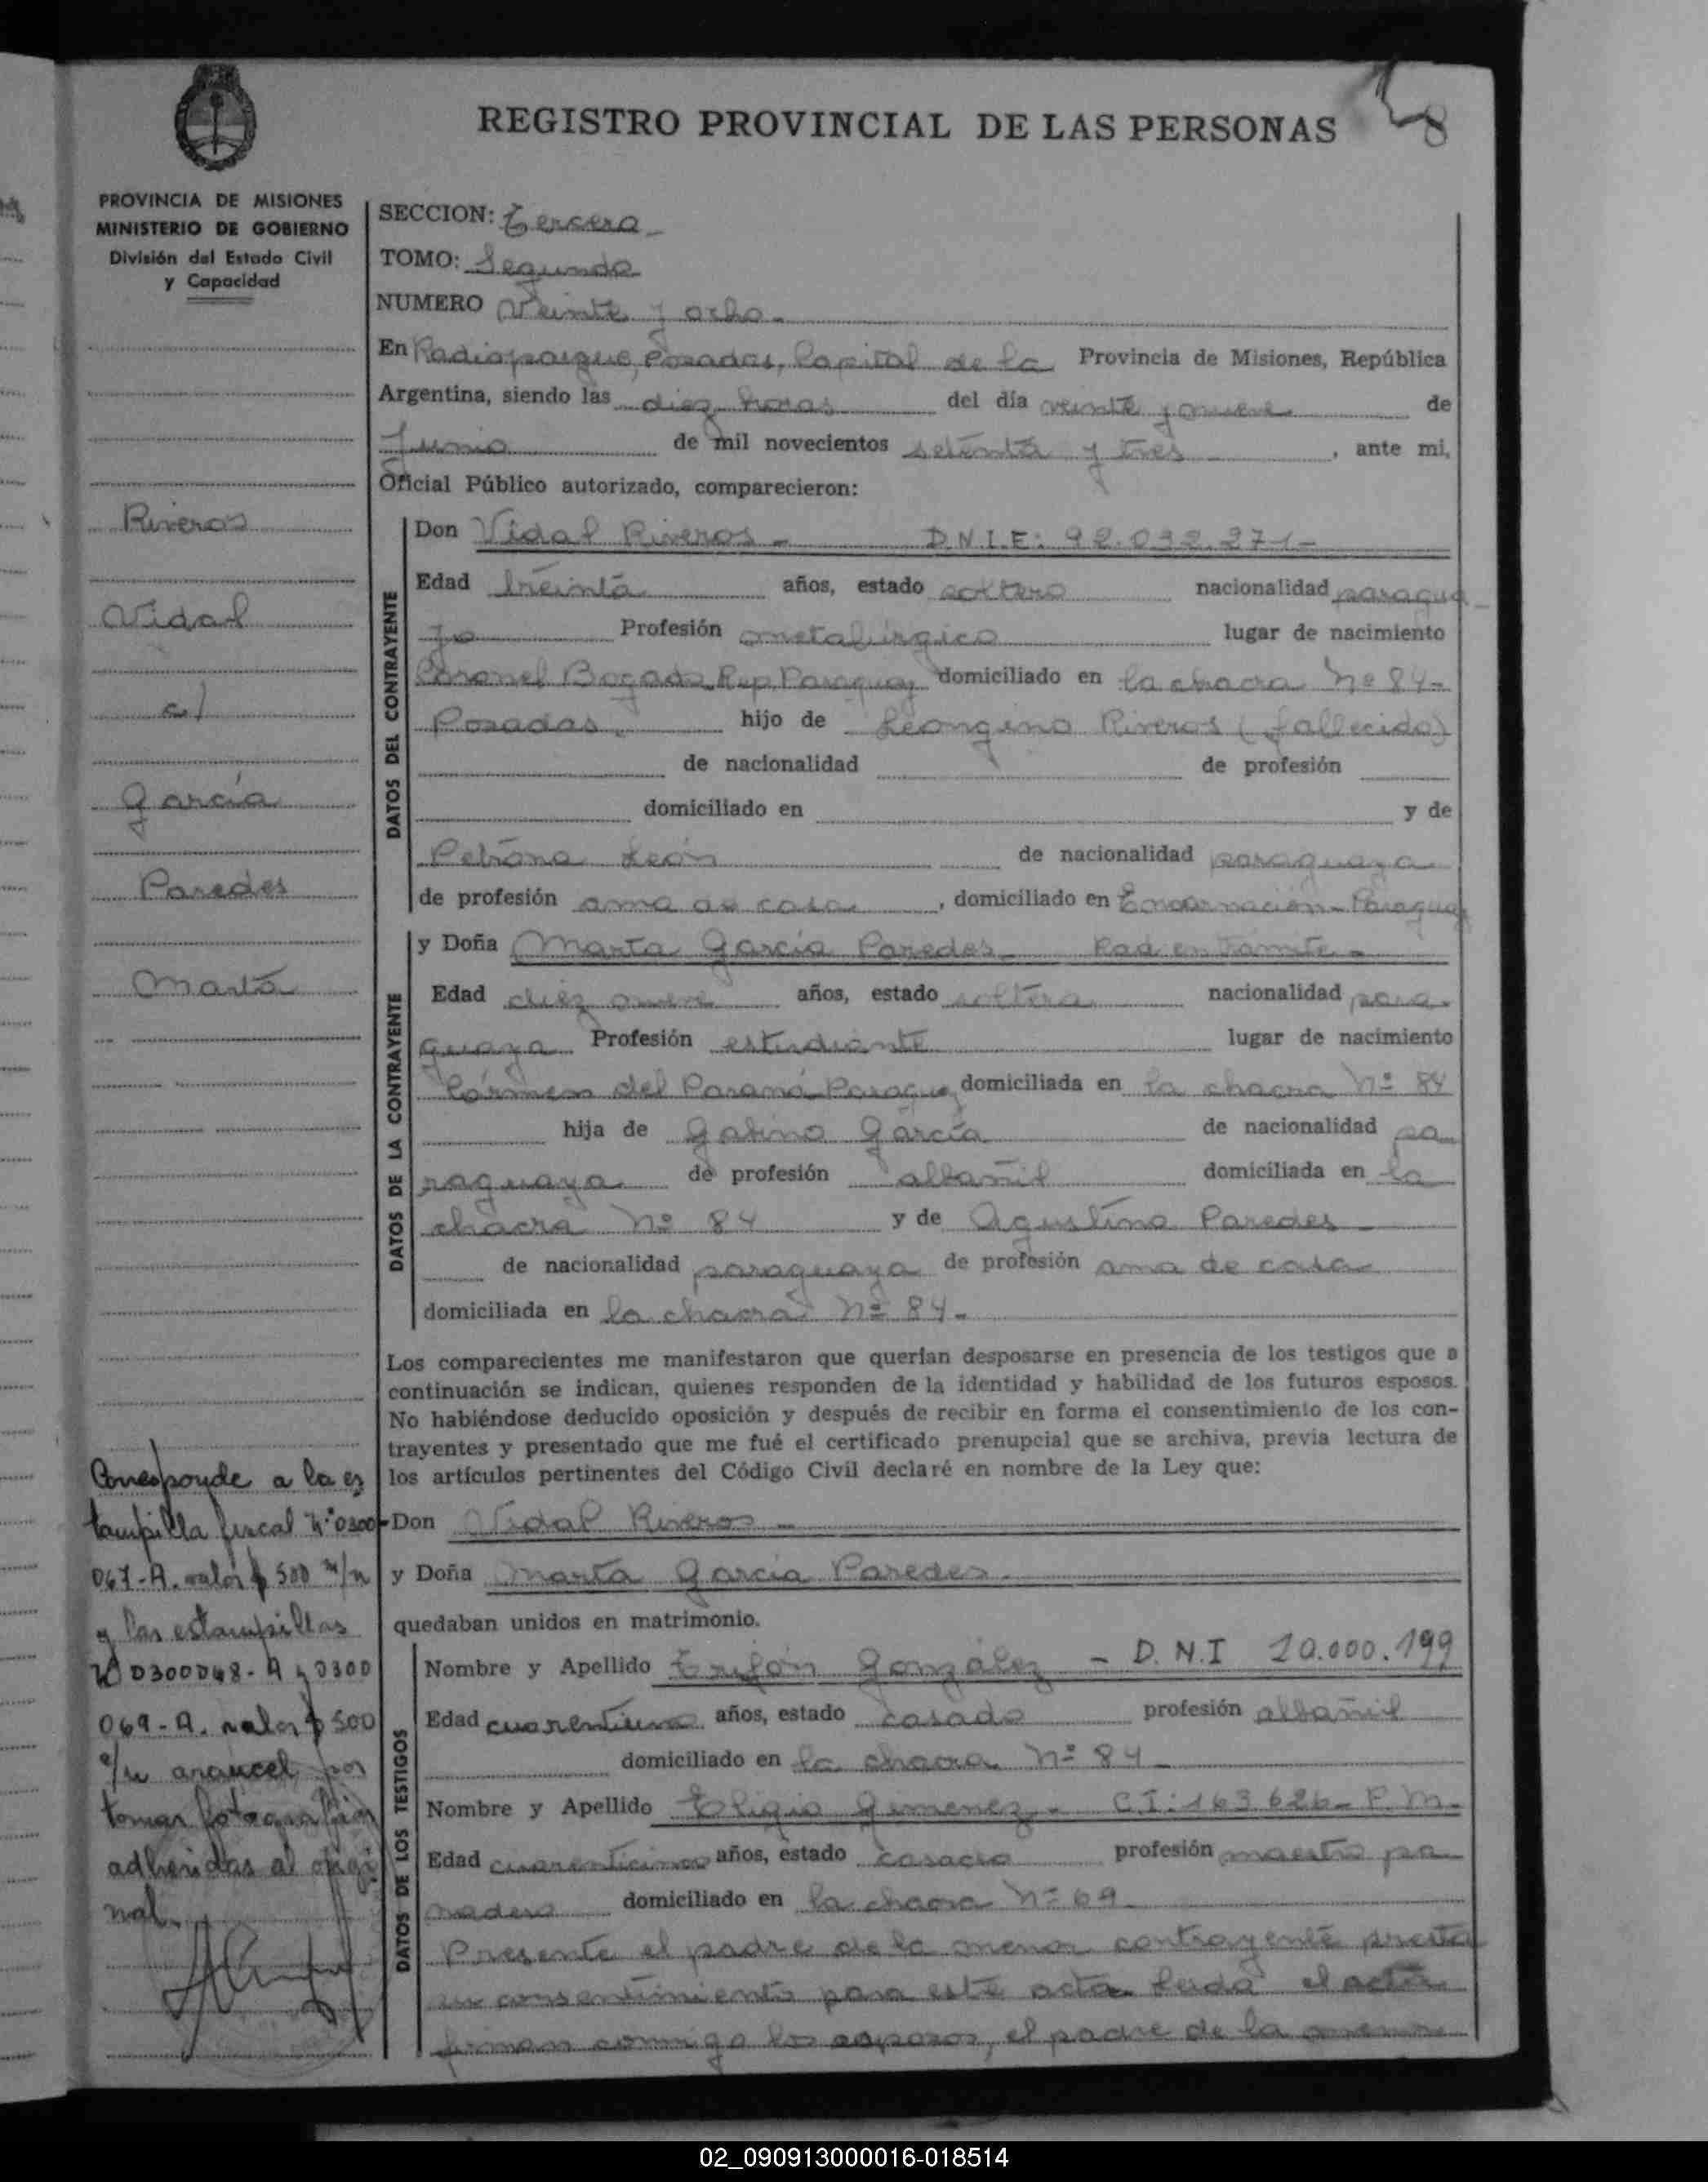 28
REGISTRO PROVINCIAL DE LAS PERSONAS
PROVINCIA DE MISIONES
MINISTERIO DE GOBIERNO
División del Estado Civil
y Capacidad
Riveros
Vidal
c/
García
Paredes
Marta
Corresponde a la es
tampilla fiscal Nº 0300
067-A. valor $ 500 m/n
y las estampillas
Nº 0300048-A y 0300
069-A. valor $ 500
c/u arancel por
tomar fotografías
adheridas al origi
nal.
SECCION: Tercera
TOMO: Segundo
NUMERO Veinte y ocho.
En Radioparque, Posadas, Capital de la Provincia de Misiones, República
Argentina, siendo las diez horas del día veinte y nueve de
Junio de mil novecientos setenta y tres, ante mi,
Oficial Público autorizado, comparecieron:
DATOS DEL CONTRAYENTE
Don Vidal Riveros - D.N.I.E: 92.032.271-
Edad treinta años, estado soltero nacionalidad paragua
yo Profesión metalúrgico lugar de nacimiento
Coronel Bogado Rep. Paraguay domiciliado en la chacra Nº 84-
Posadas. hijo de Leongino Riveros (fallecido)
de nacionalidad de profesión
domiciliado en y de
Petrona León de nacionalidad paraguaya
de profesión ama de casa, domiciliado en Encarnación-Paraguay
DATOS DE LA CONTRAYENTE
y Doña Marta García Paredes - Rad. en Tramite-
Edad diez nueve años, estado soltera nacionalidad para-
guaya Profesión estudiante lugar de nacimiento
Cármen del Paraná-Paraguay domiciliada en la chacra Nº 84
hija de Gabino García de nacionalidad pa
raguaya de profesión albañil domiciliada en la
chacra Nº 84 y de Agustina Paredes
de nacionalidad paraguaya de profesión ama de casa
domiciliada en la chacra Nº 84-
Los comparecientes me manifestaron que querían desposarse en presencia de los testigos que a
continuación se indican, quienes responden de la identidad y habilidad de los futuros esposos.
No habiéndose deducido oposición y después de recibir en forma el consentimiento de los con-
trayentes y presentado que me fué el certificado prenupcial que se archiva, previa lectura de
los artículos pertinentes del Código Civil declaré en nombre de la Ley que:
Don Vidal Riveros -
y Doña Marta García Paredes.
quedaban unidos en matrimonio.
DATOS DE LOS TESTIGOS
Nombre y Apellido Trifón González - D.N.I 10.000.199
Edad cuarentiuno años, estado casado profesión albañil
domiciliado en la chacra Nº 84
Nombre y Apellido Eligio Gimenez - C.I: 163.626- P.M.
Edad cuarenticinco años, estado casado profesión maestro pa
nadero domiciliado en la chacra Nº 69
Presente el padre de la menor contrayente presta
su consentimiento para este acto. Leida el acta
firman conmigo los esposos, el padre de la menor
02_090913000016-018514